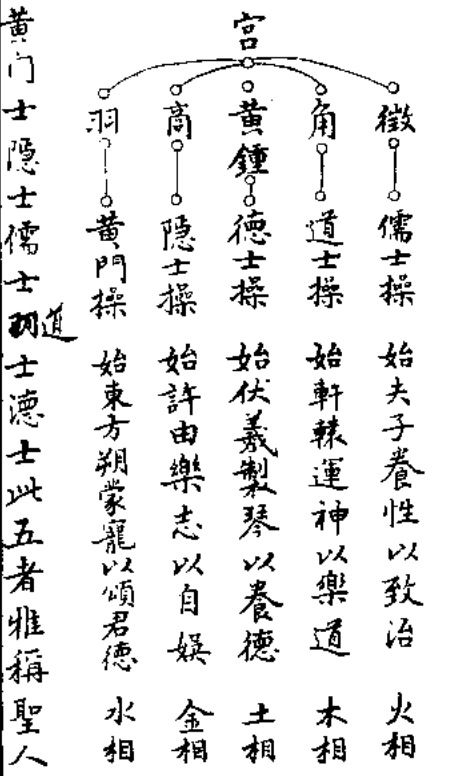 宮
徵 儒士操 始夫子養性以致治 火相
角 道士操 始軒轅運神以樂道 木相
黄鍾 德士操 始伏羲製琴以養德 土相
商 隐士操 始許由樂志以自娛 金相
羽 黄門操 始東方朔蒙寵以頌君德 水相
黄门士隐士儒士道士德士此五者雅稱聖人